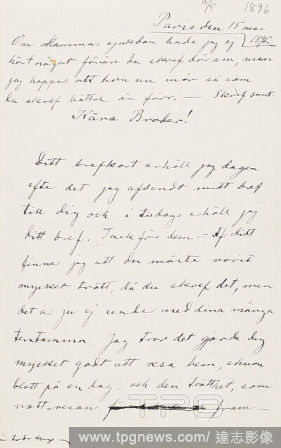 15/5 1896
Paris den 15 maj
1896
Om Mammas sjukdom hade jag ej
hört något förrän du skref därom, men
jag hoppas att hon nu mår så som
du skref bättre än förr. — Skrif snart.
Kära Broder!
Ditt brefkort erhöll jag dagen
efter det jag afsendt mitt bref
till dig och i tisdags erhöll jag
ditt bref. Tack för dem. — Af ditt
finner jag att du måtte varit
mycket trött, då du skref det, men
det är ju ej under med dina många
tentamina. Jag tror det gjorde dig
mycket godt att resa hem, ehuru
blott på en dag, och den trötthet, som
natt-resan fram-
TPG
www.tpgnews.com/ 達志影像